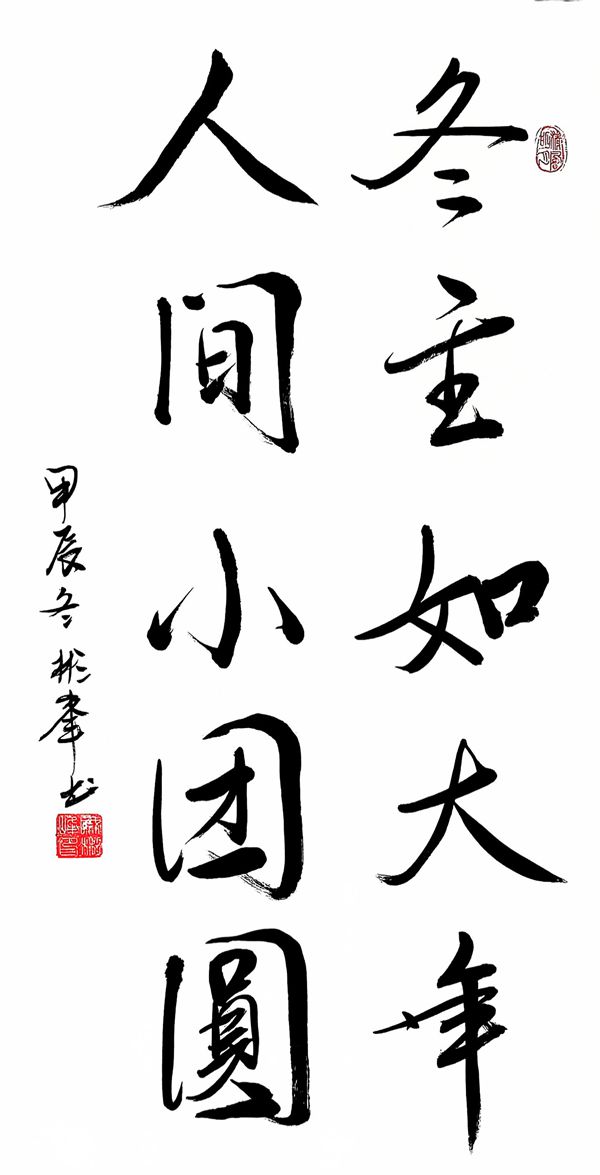 冬至如大年
人间小团圓
甲辰冬彬峯书